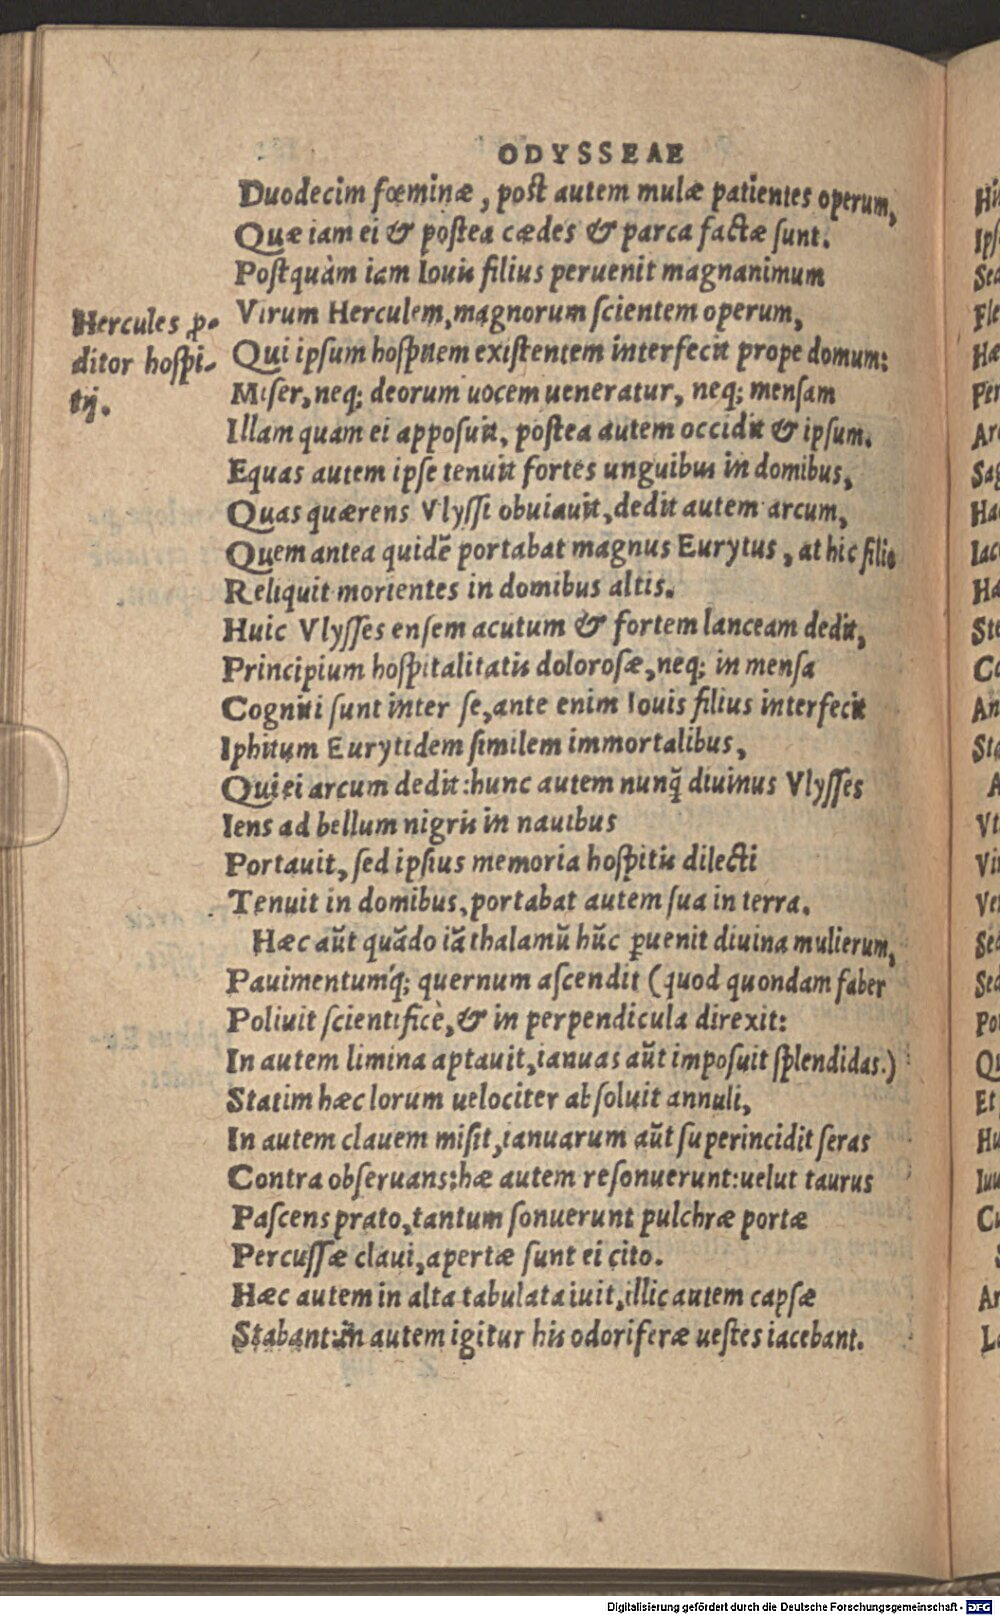 ODYSSEAE
Duodecim fœminæ, post autem mulæ patientes operum,
Quæ iam ei & postea cædes & parca factæ sunt.
Postquàm iam Iouis filius peruenit magnanimum
Virum Herculem, magnorum scientem operum,
Hercules ꝓ-
ditor hospi-
tij.
Qui ipsum hospitem existentem interfecit prope domum:
Miser, neq; deorum uocem ueneratur, neq; mensam
Illam quam ei apposuit, postea autem occidit & ipsum.
Equas autem ipse tenuit fortes unguibus in domibus,
Quas quærens Vlyssi obuiauit, dedit autem arcum,
Quem antea quidē portabat magnus Eurytus, at hic filio
Reliquit morientes in domibus altis.
Huic Vlysses ensem acutum & fortem lanceam dedit,
Principium hospitalitatis dolorosæ, neq; in mensa
Cogniti sunt inter se, ante enim Iouis filius interfecit
Iphitum Eurytidem similem immortalibus,
Qui ei arcum dedit: hunc autem nunq̃ diuinus Vlysses
Iens ad bellum nigris in nauibus
Portauit, sed ipsius memoria hospitis dilecti
Tenuit in domibus, portabat autem sua in terra.
Hæc aũt quãdo iã thalamũ hũc ꝑuenit diuina mulierum,
Pauimentumq́; quernum ascendit (quod quondam faber
Poliuit scientificè, & in perpendicula direxit:
In autem limina aptauit, ianuas aũt imposuit splendidas.)
Statim hæc lorum uelociter absoluit annuli,
In autem clauem misit, ianuarum aũt superincidit seras
Contra obseruans: hæ autem resonuerunt: uelut taurus
Pascens prato, tantum sonuerunt pulchræ portæ
Percussæ claui, apertæ sunt ei cito.
Hæc autem in alta tabulata iuit, illic autem capsæ
Stabant: in autem igitur his odoriferæ uestes iacebant.
Digitalisierung gefördert durch die Deutsche Forschungsgemeinschaft - DFG